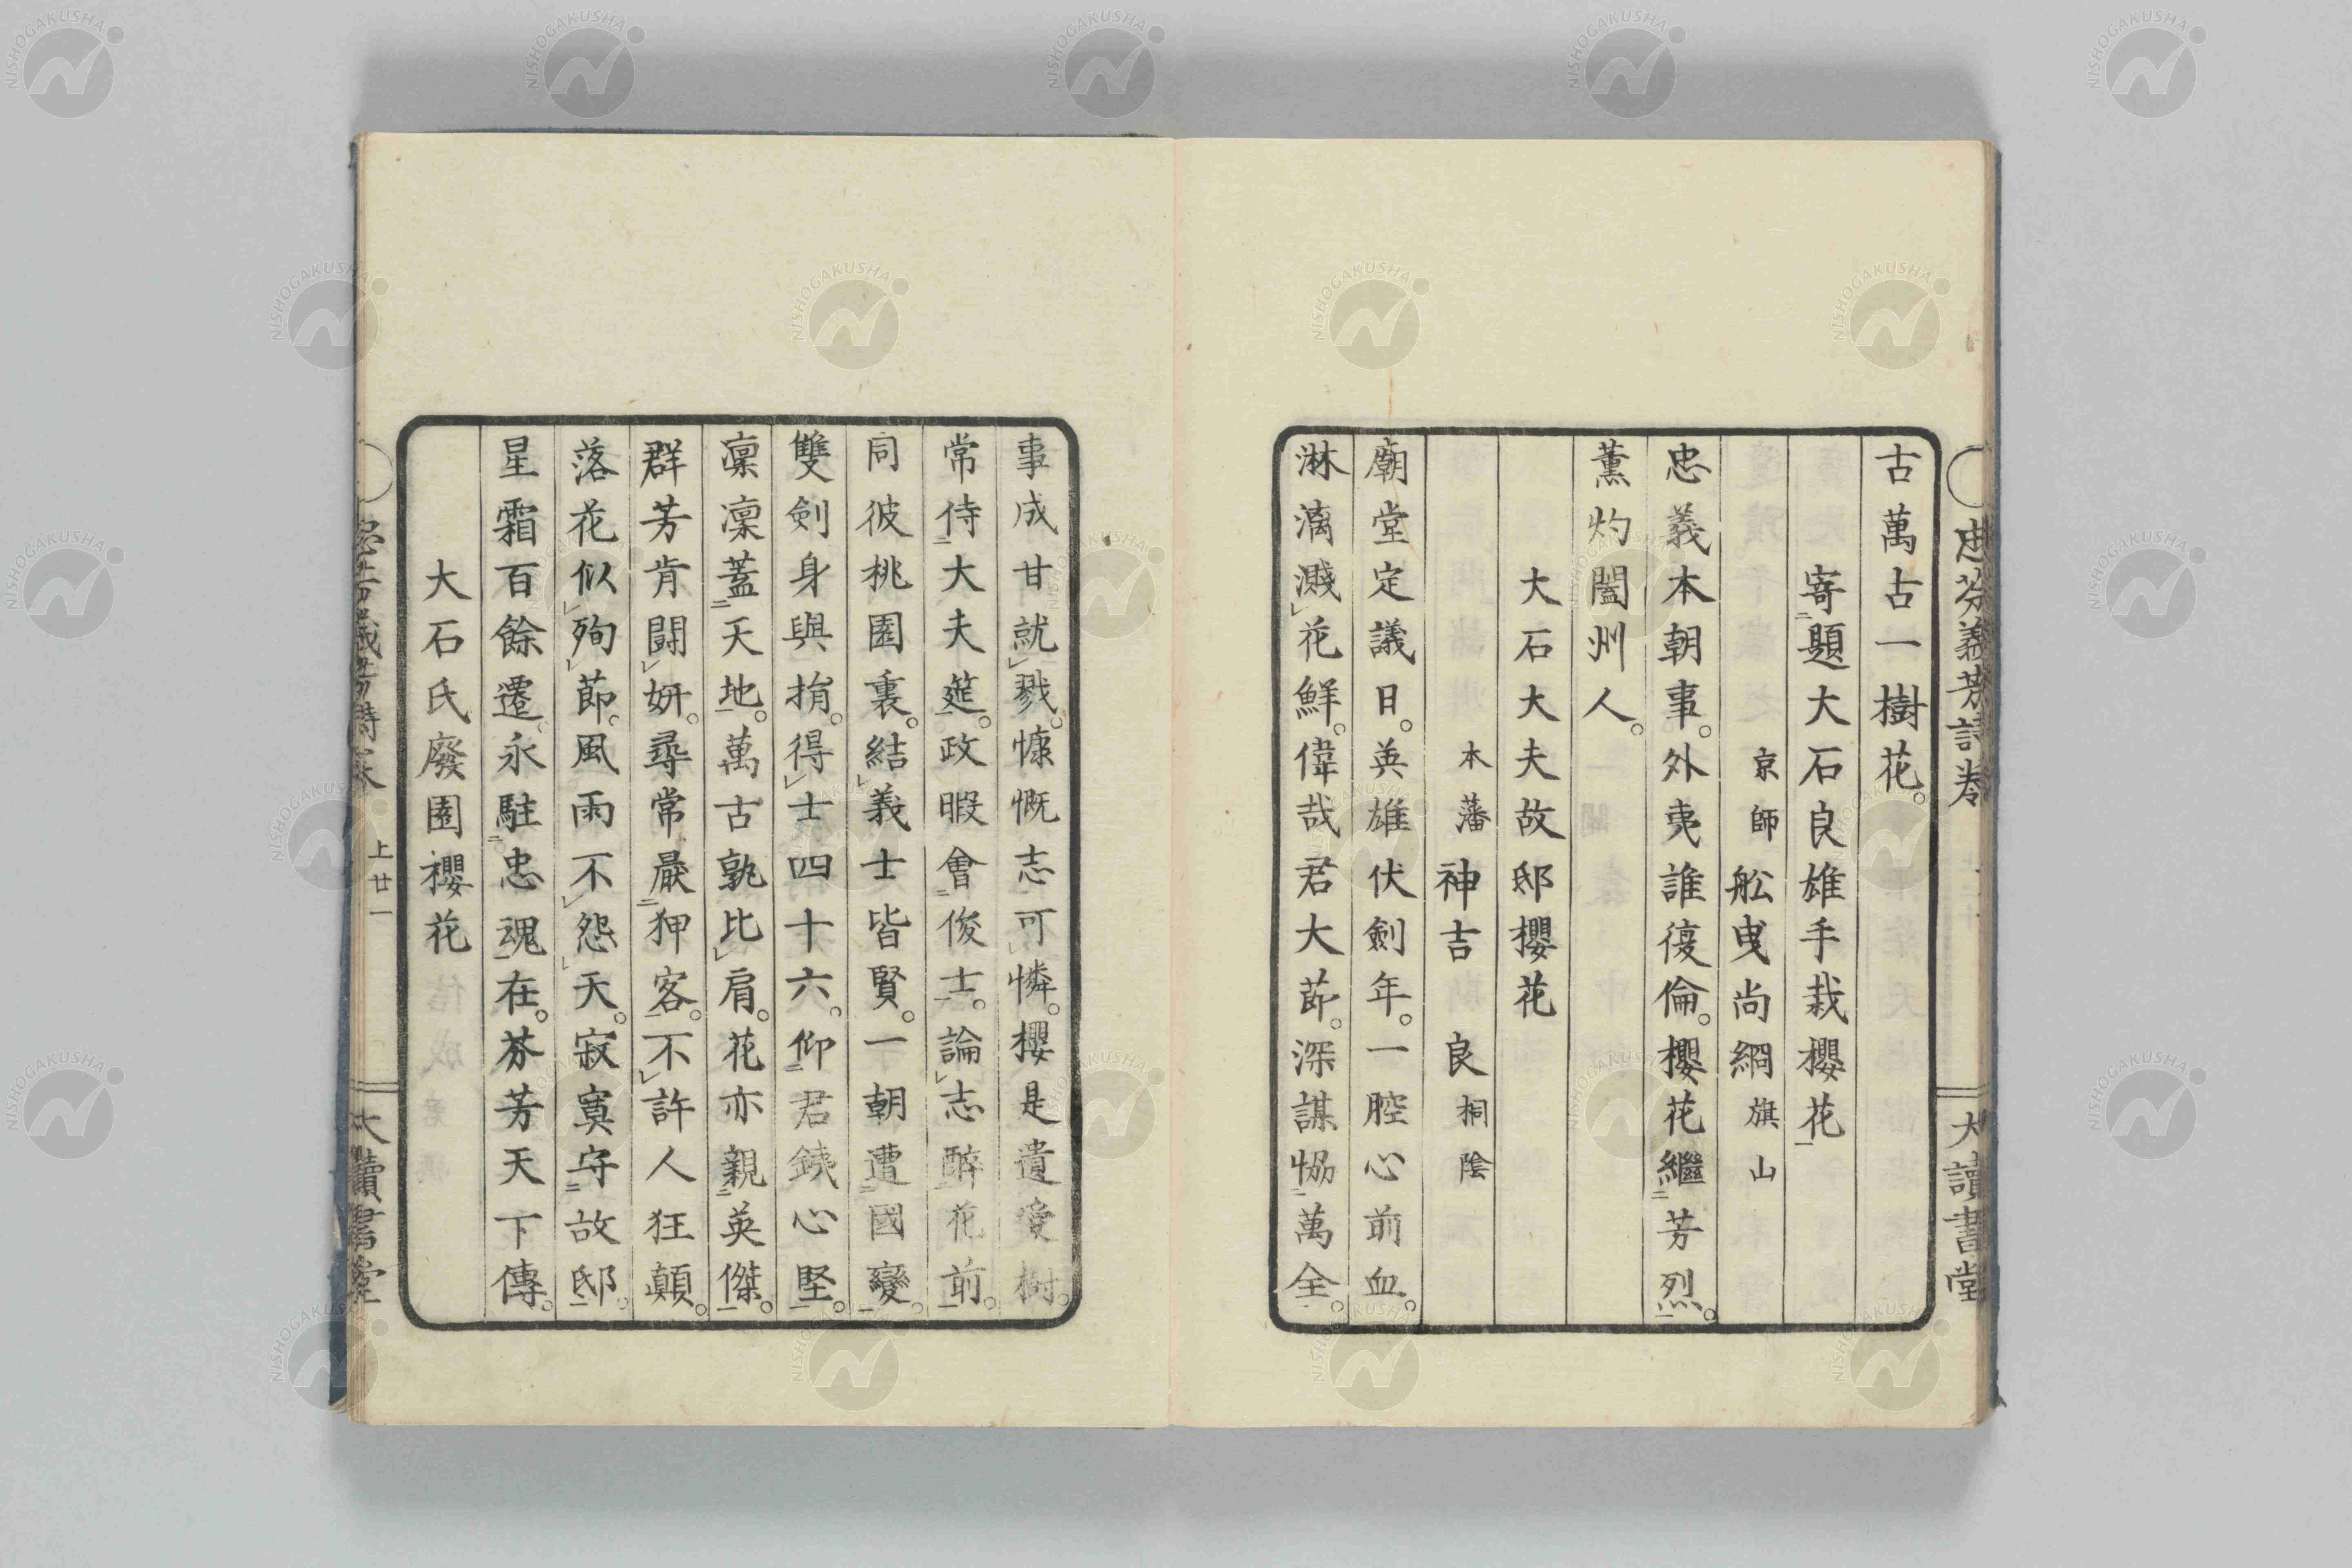 忠芬義芳詩巻
大讀書堂
古萬古一樹花。
寄題大石良雄手栽櫻花
京師 舩曳尚絅 旗山
忠義本朝事。外夷誰復倫。櫻花繼芳烈。
薫灼闔州人。
大石大夫故邸櫻花
本藩 神吉 良 桐陰
廟堂定議日。英雄伏劍年。一腔心前血。
淋漓濺花鮮。偉哉君大節。深謀恊萬全。
事成甘就戮。慷慨志可憐。櫻是遺愛樹。
常侍大夫筵。政暇會俊士。論志醉花前。
同彼桃園裏。結義士皆賢。一朝遭國變。
雙劍身與捐。得士四十六。仰君鉄心堅。
凜凜蓋天地。萬古孰比肩。花亦親英傑。
群芳肯鬪妍。尋常嚴狎客。不許人狂顛。
落花似殉節。風雨不怨天。寂寞守故邸。
星霜百餘遷。永駐忠魂在。芬芳天下傳。
大石氏廢園櫻花
忠芬義芳詩巻 上廿一
大讀書堂
NISHOGAKUSHA